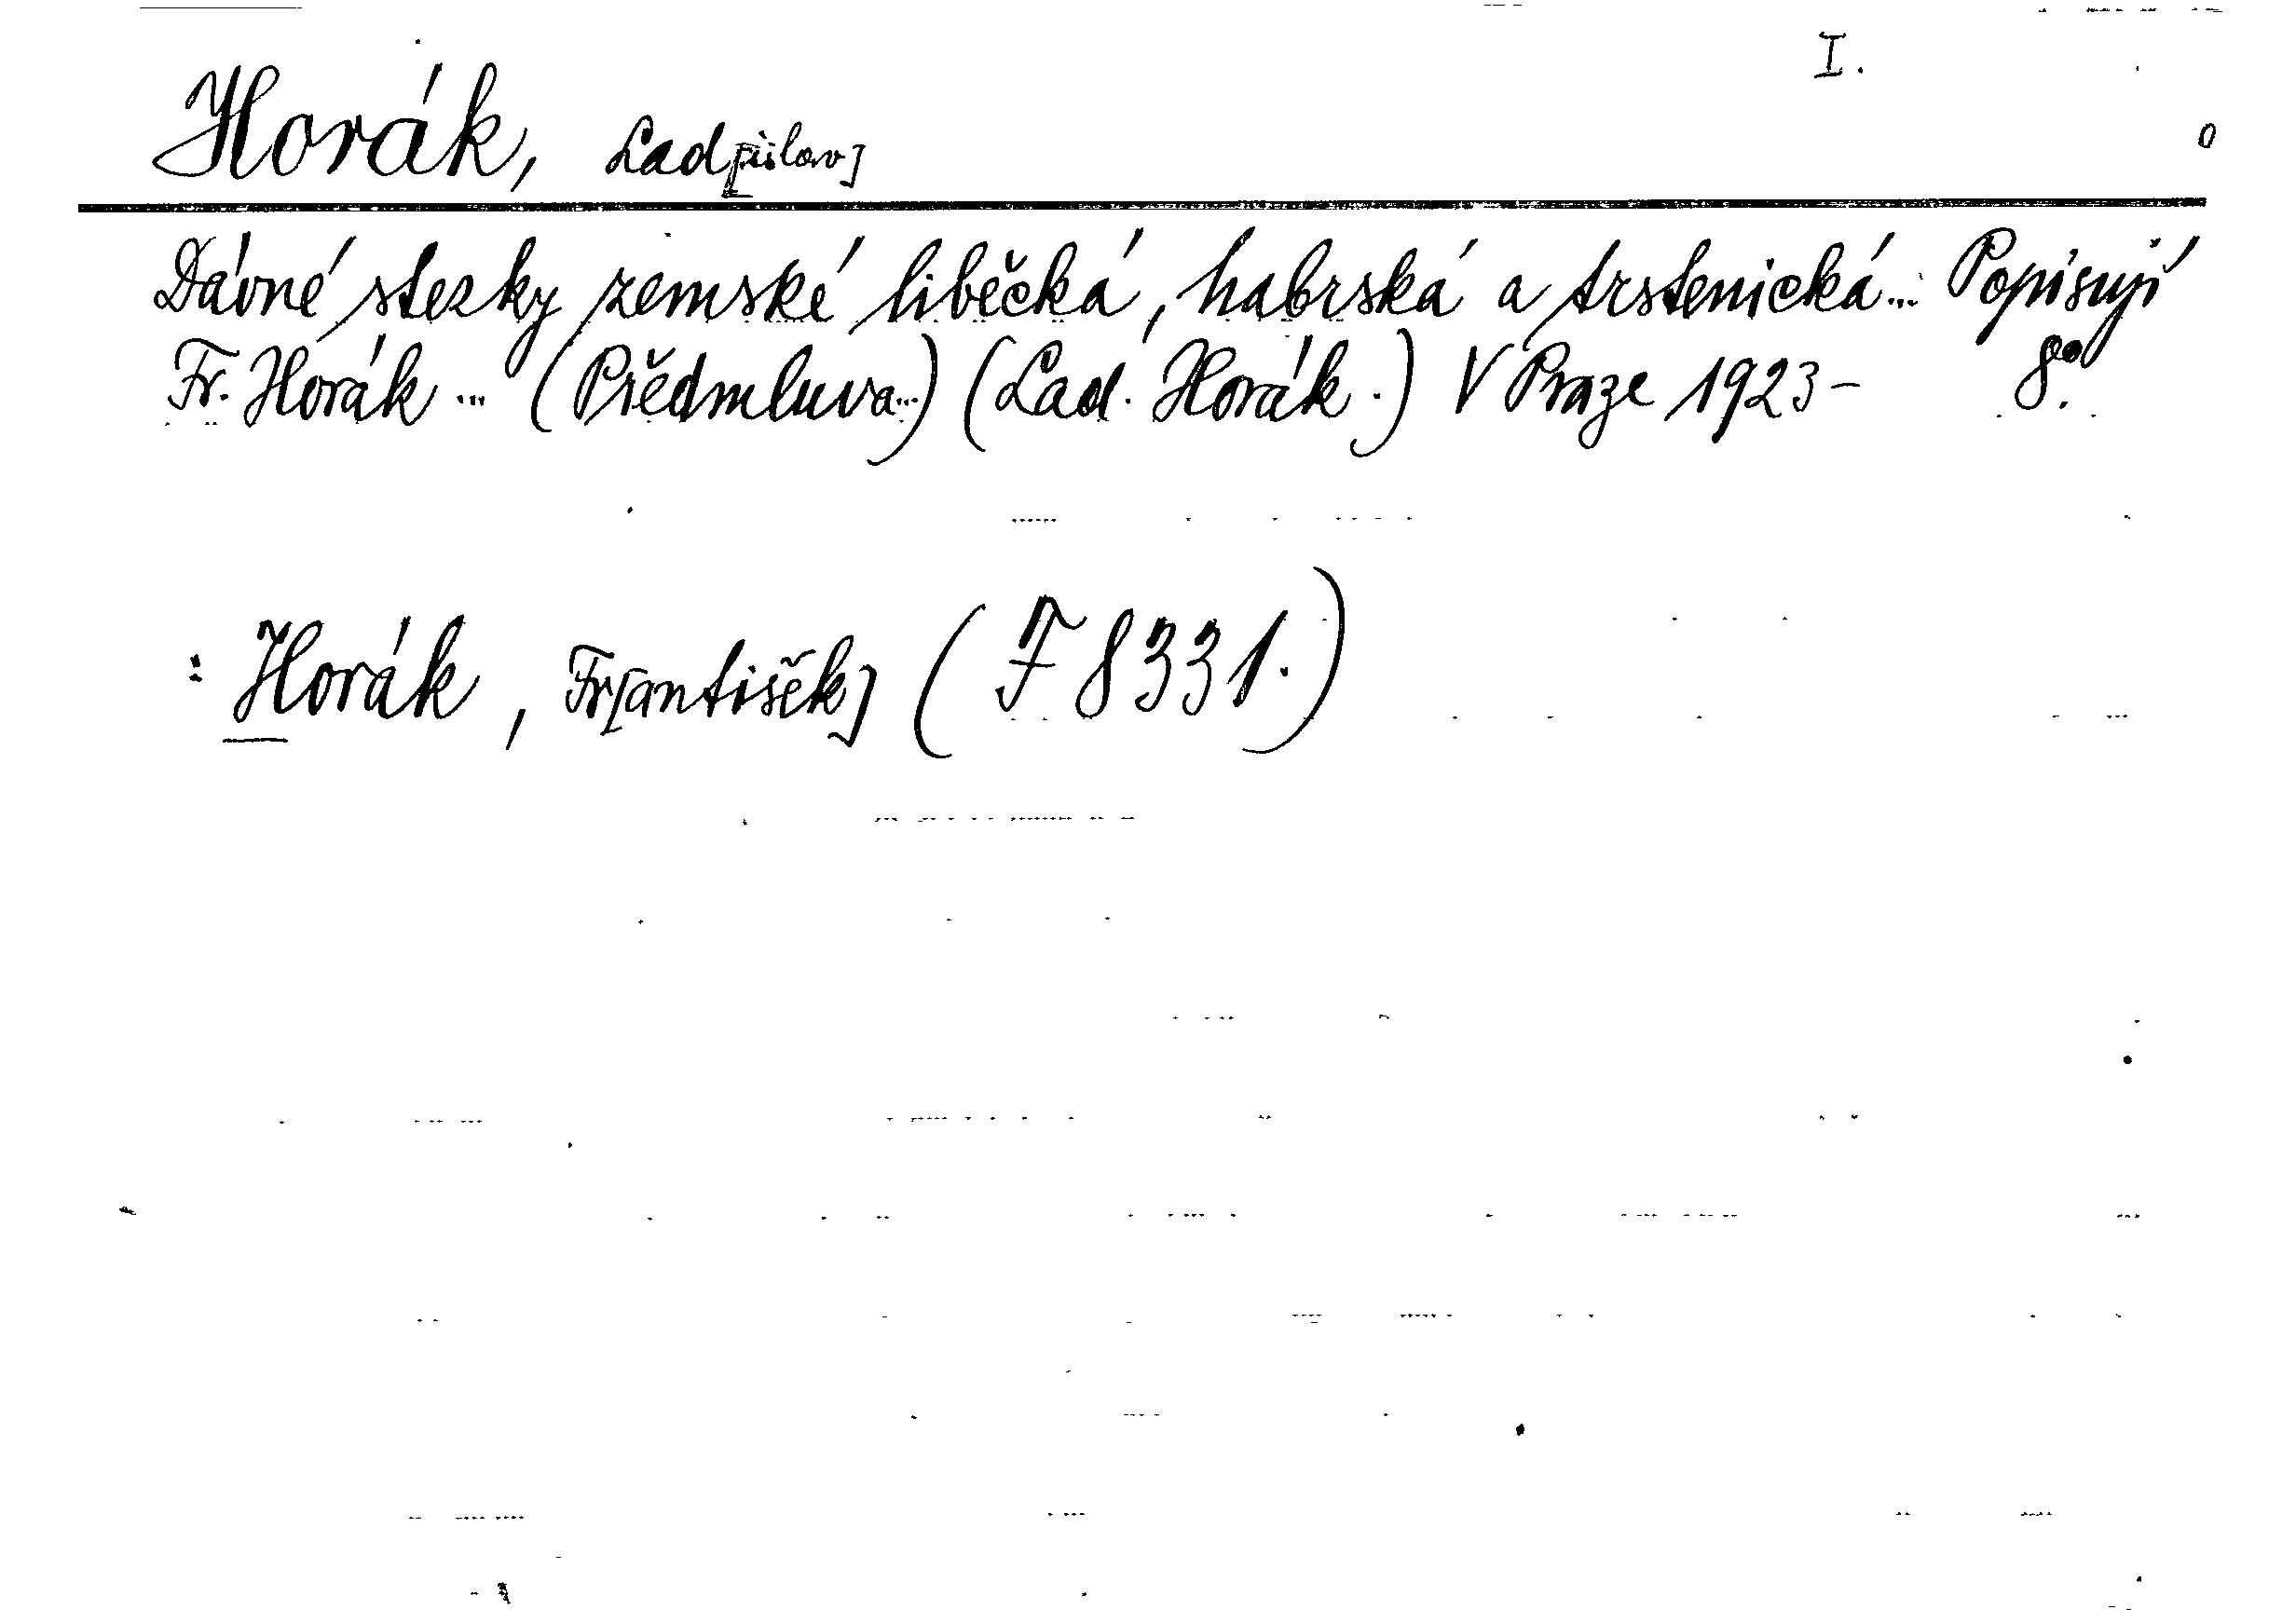 I.
Horák, Lad[islav]
Dávné stezky zemské liběčká, habrská a trstenická... Popisují
Fr. Horák ... (Předmluva...) (Lad. Horák.) V Praze 1923- 8º.
: Horák, Fr[antišek] (F 8331.)